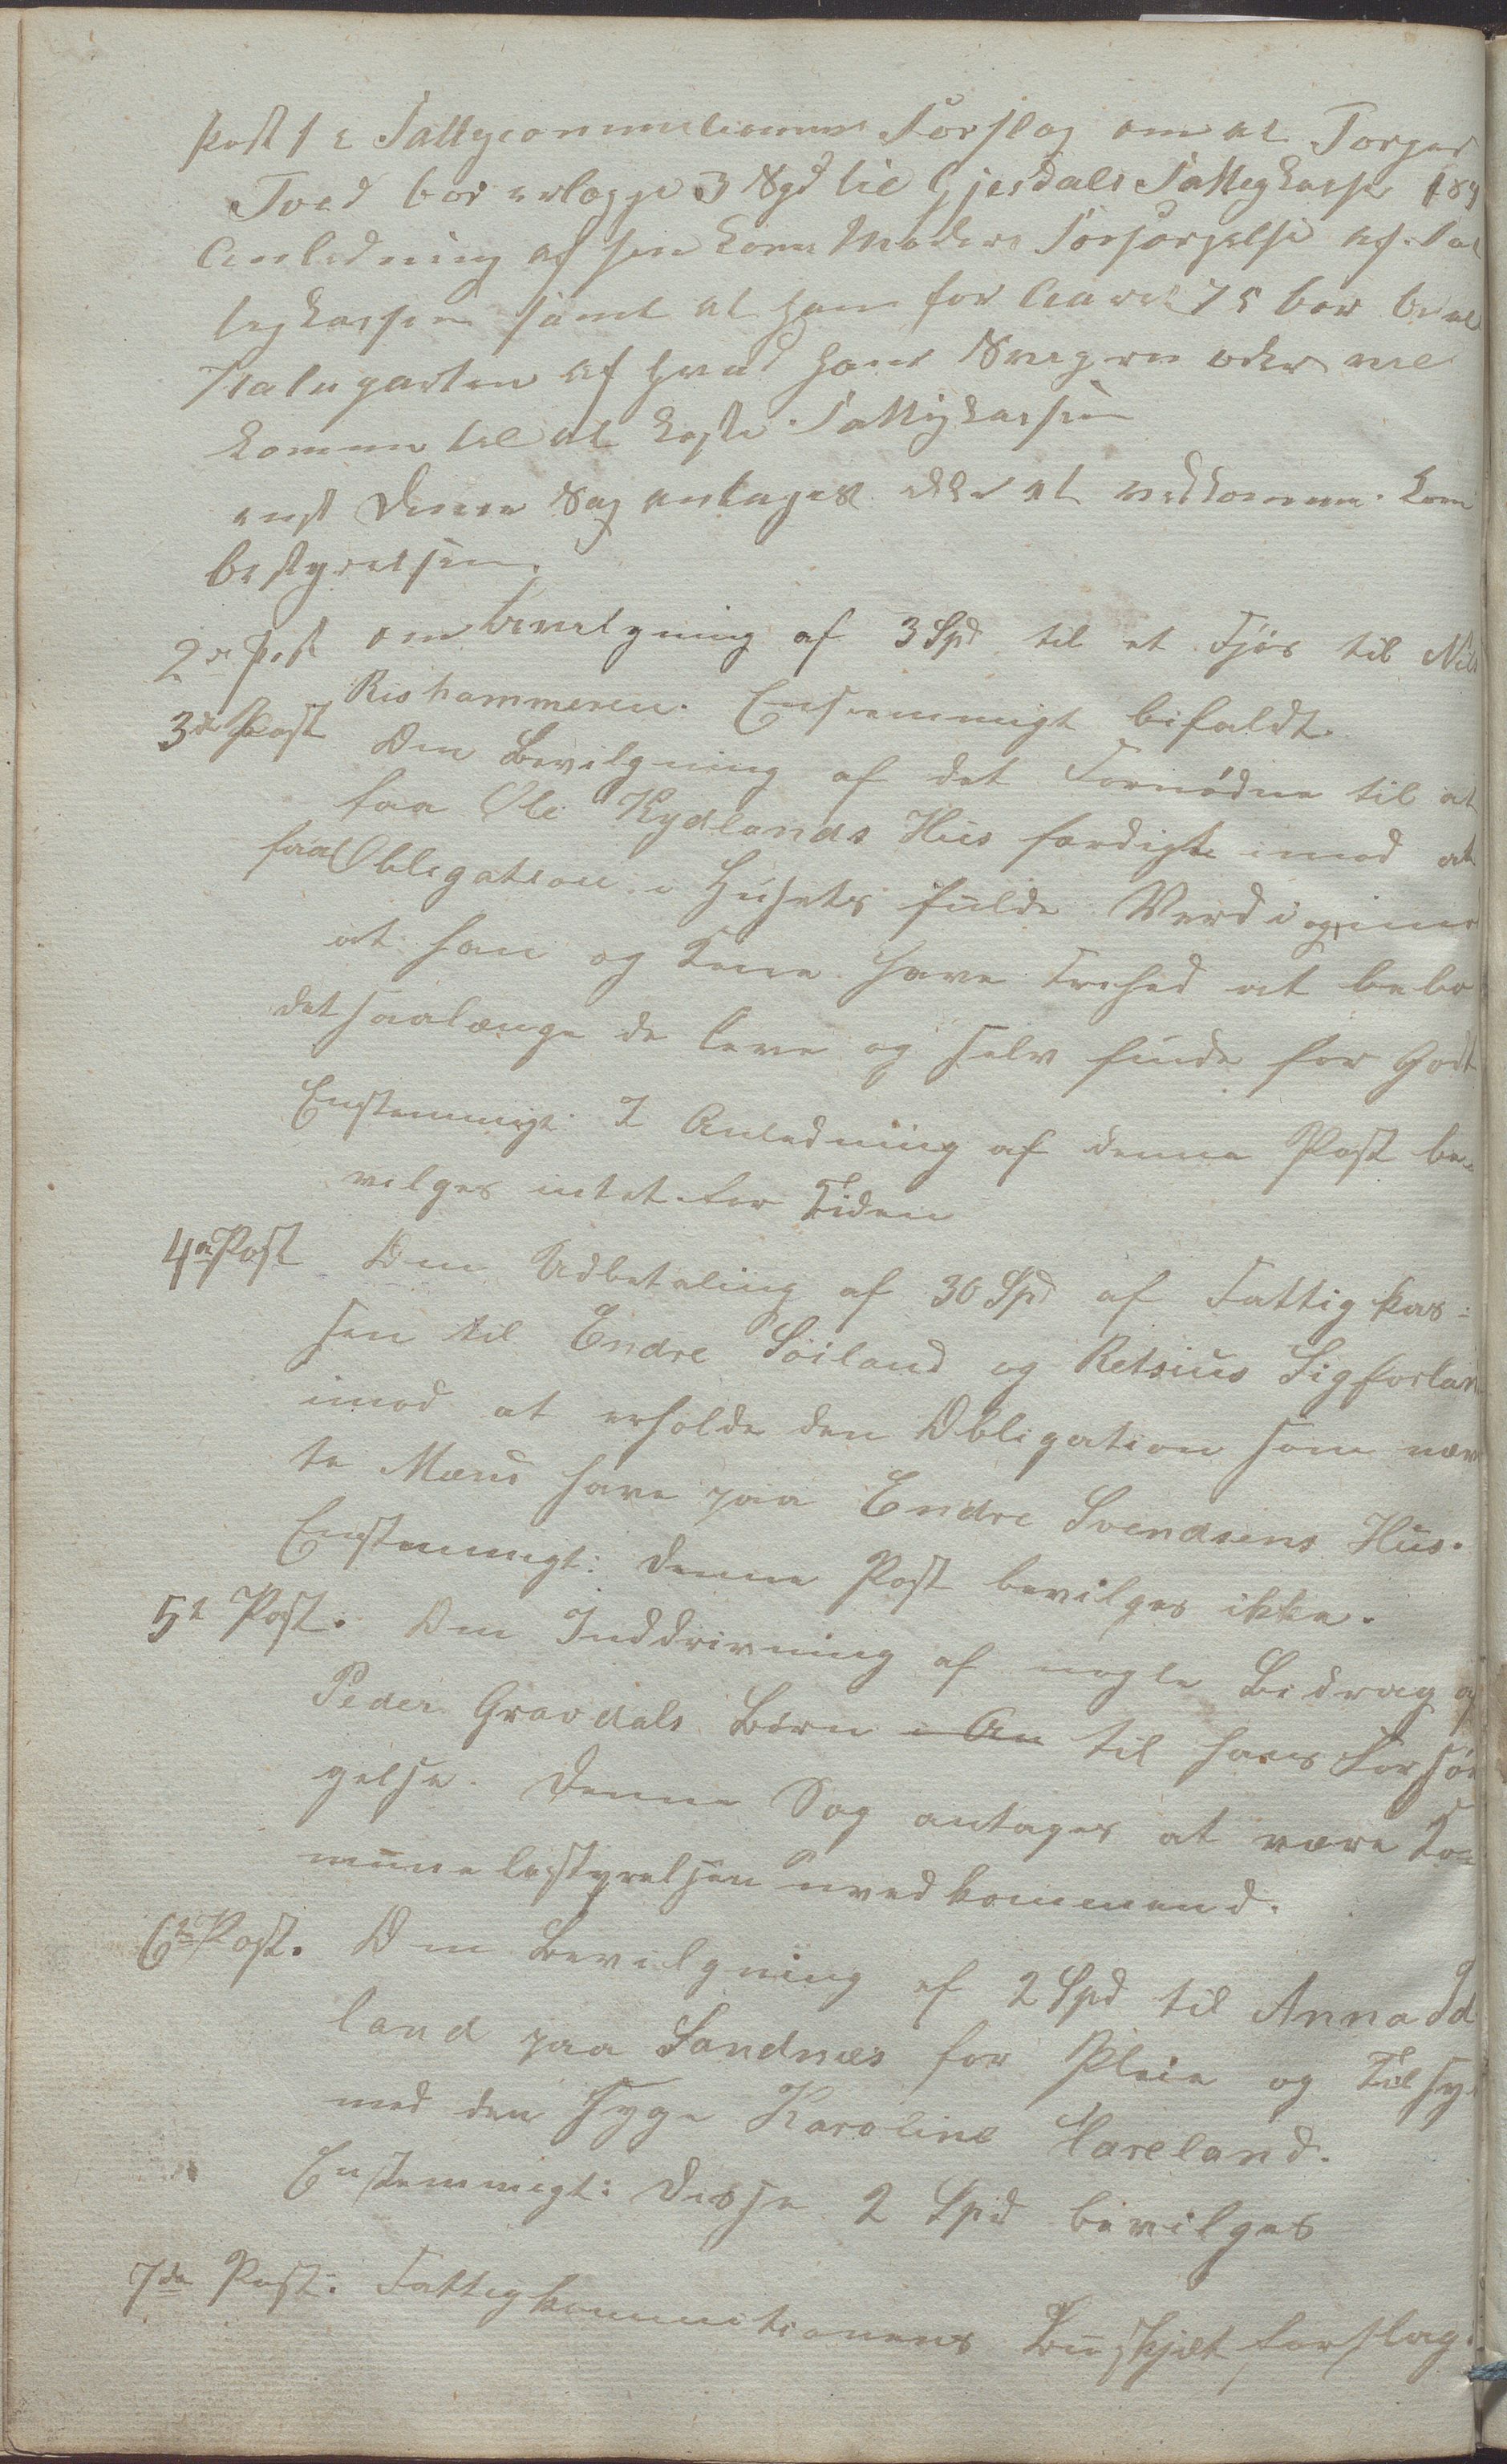 Post 1 Fattigcommisionens Forslag om at Torger
Tved bør erlægge 3 Spd til Gjesdals Fattigkasse
Anledning af sin Kones Moders Forsørgelse af Fat
tigkassen samt at han for Aaret 75 bør betal
Halvparten af hvad hans Svigermoder vil
komme til at koste Fattigkassen
enst Denne Sag antages ikke at vedkomme Kom
bestyrelsen.
2den Post om Bevilgning af 3 Spd til et Fjøs til Nils
Rishammeren. Enstemmigt bifaldt.
3die Post Om Bevilgning af det Fornødne til at
faa Ole Kydlands Hus færdigt imod at
faa Obligation i Husets fulde Værdi og imod
at han og Kone have Frihed at bebo
det saalænge de leve og selv finde for Godt
Enstemmigt: I Anledning af denne Post be-
vilges intet for Tiden
4de Post Om Udbetaling af 30 Spd af Fattigkas-
sen til Endre Søiland og Retsius Sigforlan
imod at erholde den Obligation som næv
te Mænd have paa Endre Svendsens Hus.
Enstemmigt: Denne Post bevilges ikke.
5te Post. Om Inddrivning af nogle Bidrag af
Peder Gravdals Børn i An til hans Forsør
gelse. Denne Sag antages at være Ko-
munebestyrelsen uvedkommend.
6te Post. Om Bevilgning af 2 Spd til Anna Id
land paa Sandnæs for Pleie og Tilsyn
med den syge Karoline Hareland.
Enstemmigt: Disse 2 Spd bevilges
7de Post: Fattigkommisionens Budgjetforslag.